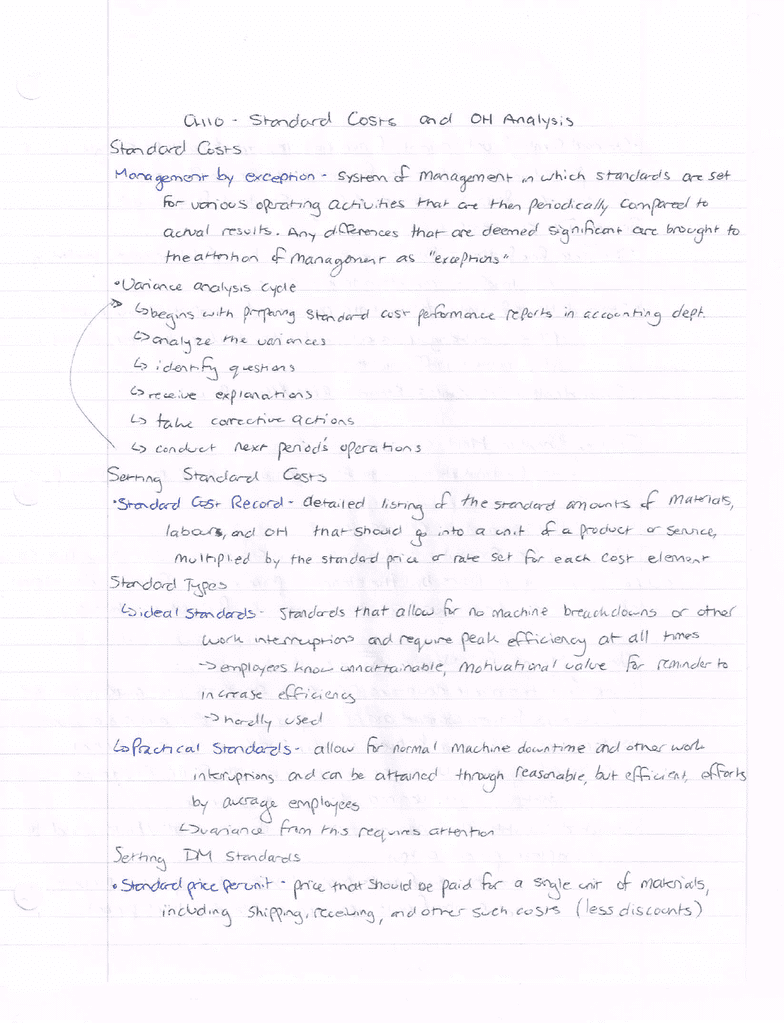 CH10 - Standard Costs and OH Analysis
Standard Costs
Management by exception - System of management in which standards are set
for various operating activities that are then periodically compared to
actual results. Any differences that are deemed significant are brought to
the attention of management as "exceptions"
• Variance analysis cycle
↳ begins with preparing standard cost performance reports in accounting dept.
↳ analyze the variances
↳ identify questions
↳ receive explanations
↳ take corrective actions
↳ conduct next period's operations
Setting Standard Costs
• Standard Cost Record - detailed listing of the standard amounts of materials,
labours, and OH that should go into a unit of a product or service,
multiplied by the standard price or rate set for each cost element
Standard Types
↳ ideal standards - standards that allow for no machine breakdowns or other
work interruptions and require peak efficiency at all times
→ employees know unnattainable, motivational value for reminder to
increase efficiency
→ hardly used
↳ Practical Standards - allow for normal machine downtime and other work
interuptions and can be attained through reasonable, but efficient, efforts
by average employees
↳ variance from this requires attention
Setting DM Standards
• Standard price per unit - price that should be paid for a single unit of materials,
including shipping, receiving, and other such costs (less discounts)